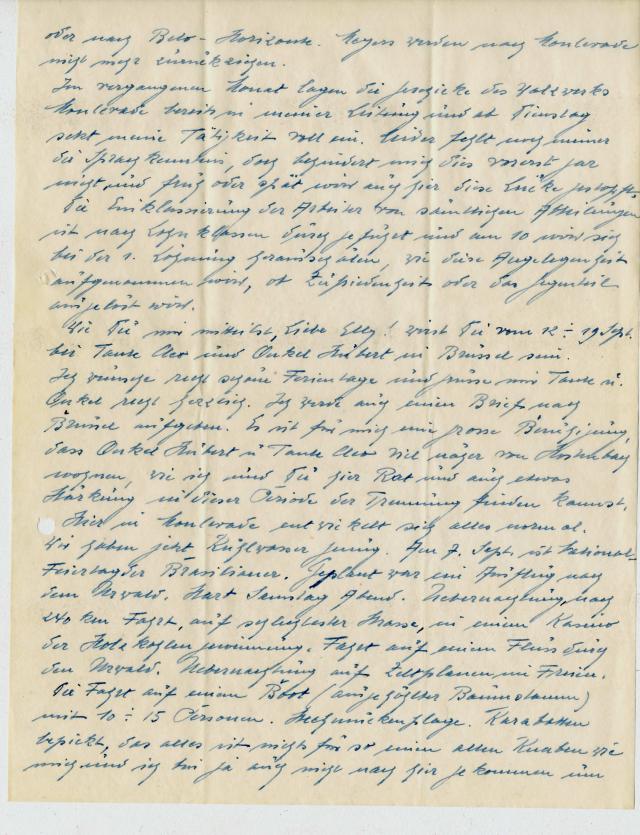 oder nach Belo-Horizonte. Meyers werden nach Monlevade
nicht mehr zurückziehen.
Im vergangenen Monat lagen die Geschicke des Walzwerks
Monlevade bereits in meiner Leitung und ab Dienstag
setzt meine Tätigkeit voll ein. Leider fehlt noch immer
die Sprachkenntnis, doch behindert mich dies vorerst gar
nicht und früh oder spät wird auch hier diese Lücke gestopft.
Die Einklassierung der Arbeiter von sämtlichen Abteilungen
ist nach Lohnklassen durchgeführt und am 10 wird sich
bei der 1. Löhnung herausschälen, wie diese Angelegenheit
aufgenommen wird, ob Zufriedenheit oder das Gegenteil
ausgelöst wird.
Wie Du mir mitteilst, Liebe Elly! wirst Du vom 12 ÷ 19 Sept.
bei Tante Cleo und Onkel Hubert in Brüssel sein.
Ich wünsche recht schöne Ferientage und grüsse mir Tante u.
Onkel recht herzlich. Ich werde auch einen Brief nach
Brüssel aufgeben. Es ist für mich eine grosse Beruhigung,
dass Onkel Hubert u Tante Cleo viel näher von Hostenbach
wohnen, wie ich und Du hier Rat und auch etwas
Stärkung in dieser Periode der Trennung finden kannst.
Hier in Monlevade entwickelt sich alles normal.
Wir haben jetzt Kühlwasser genug. Am 7. Sept. ist National-
Feiertag der Brasilianer. Geplant war ein Ausflug nach
dem Urwald. Start Samstag Abend. Uebernachtung, nach
240 km Fahrt, auf schlechtester Strasse, in einem Kasino
der Holzkohlengewinnung. Fahrt auf einem Fluss durch
den Urwald. Uebernachtung auf Zeltplanen im Freien.
Die Fahrt auf einem Boot (ausgehöhlter Baumstamm)
mit 10 ÷ 15 Personen. Stechmückenplage. Karabatten
bespickt, das alles ist nichts für so einen alten Knaben wie
mich und ich bin ja auch nicht nach hier gekommen um